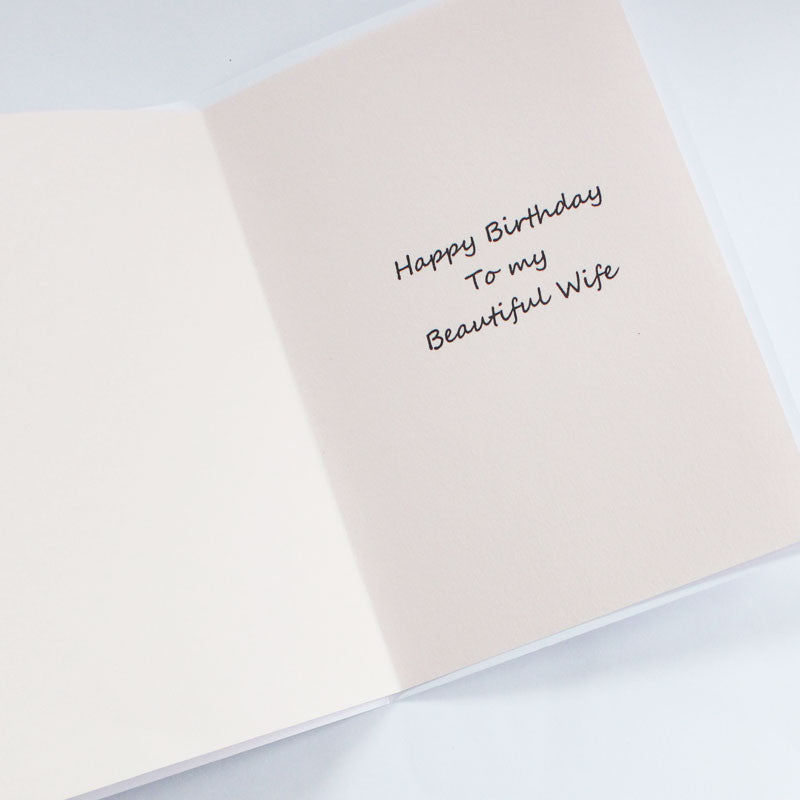 Happy Birthday
To my
Beautiful Wife